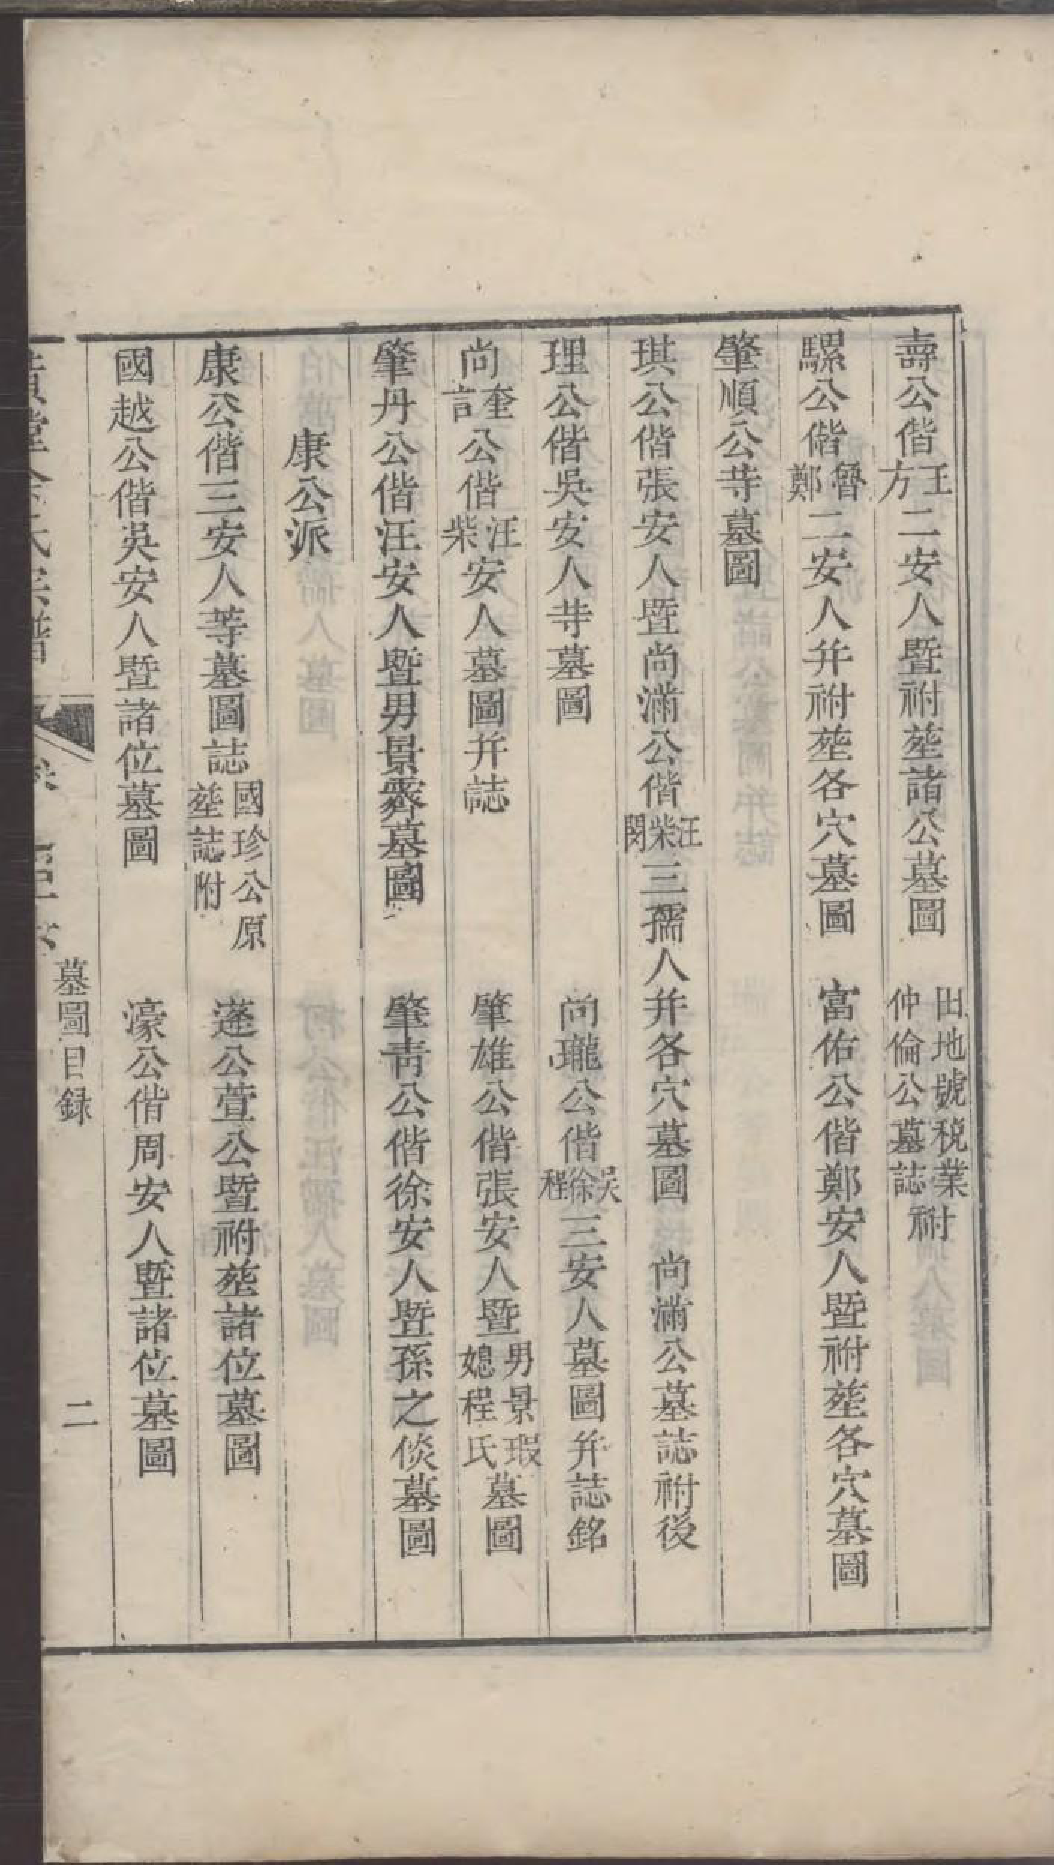 壽公偕王方二安人暨祔塟諸公墓圖　田地號稅業祔仲倫公墓誌
騾公偕曾鄭二安人幷祔塟各穴墓圖　富佑公偕鄭安人暨祔塟各穴墓圖
肇順公寺墓圖
琪公偕張安人暨尚滿公偕汪柴閔三孺人幷各穴墓圖　尚滿公墓誌祔後
理公偕吳安人寺墓圖　尚瓏公偕吳徐程三安人墓圖幷誌銘
尚奎言公偕汪柴安人墓圖幷誌　肇雄公偕張安人暨男景瑕媳程氏墓圖
肇丹公偕汪安人暨男景霽墓圖　肇靑公偕徐安人暨孫之倓墓圖
康公派
康公偕三安人等墓圖誌國珍公原塟誌附　蓬公萱公暨祔塟諸位墓圖
國越公偕吳安人暨諸位墓圖　濠公偕周安人暨諸位墓圖
墓圖目録　二